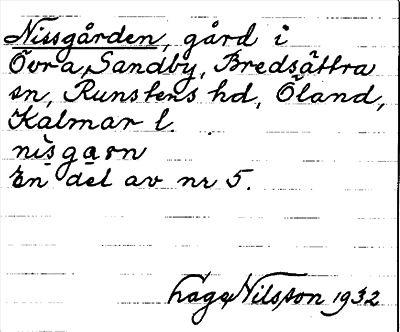 Nissgården, gård i
Övra Sandby, Bredsättra
sn, Runstens hd, Öland,
Kalmar l.
nìsga̱ṣn
En del av nr 5.
Hage Nilsson 1932